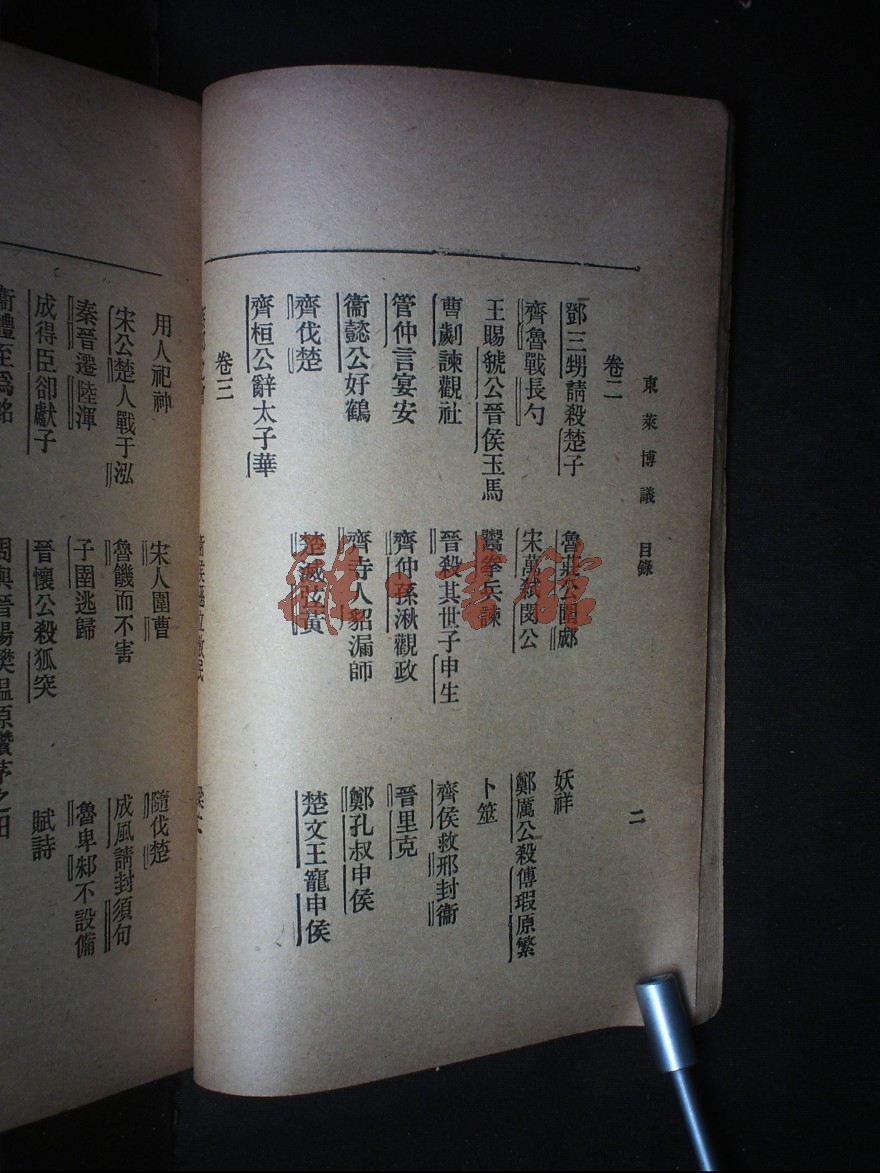 東萊博議 目錄 二
卷二
鄧三甥請殺楚子 魯莊公圍郕 妖祥
齊魯戰長勺 宋萬弒閔公 鄭厲公殺傅瑕原繁
王賜虢公晉侯玉馬 鬻拳兵諫 卜筮
曹劌諫觀社 晉殺其世子申生 齊侯救邢封衞
管仲言宴安 齊仲孫湫觀政 晉里克
衞懿公好鶴 齊寺人貂漏師 鄭孔叔申侯
齊伐楚 楚滅弦黃 楚文王寵申侯
齊桓公辭太子華
卷三
用人祀神 宋人圍曹 隨伐楚
宋公楚人戰于泓 魯饑而不害 成風請封須句
秦晉遷陸渾 子圉逃歸 魯卑邾不設備
成得臣卻獻子 晉懷公殺狐突 賦詩
衞禮至爲銘 周與晉陽樊溫原攢茅之田
雜·書館